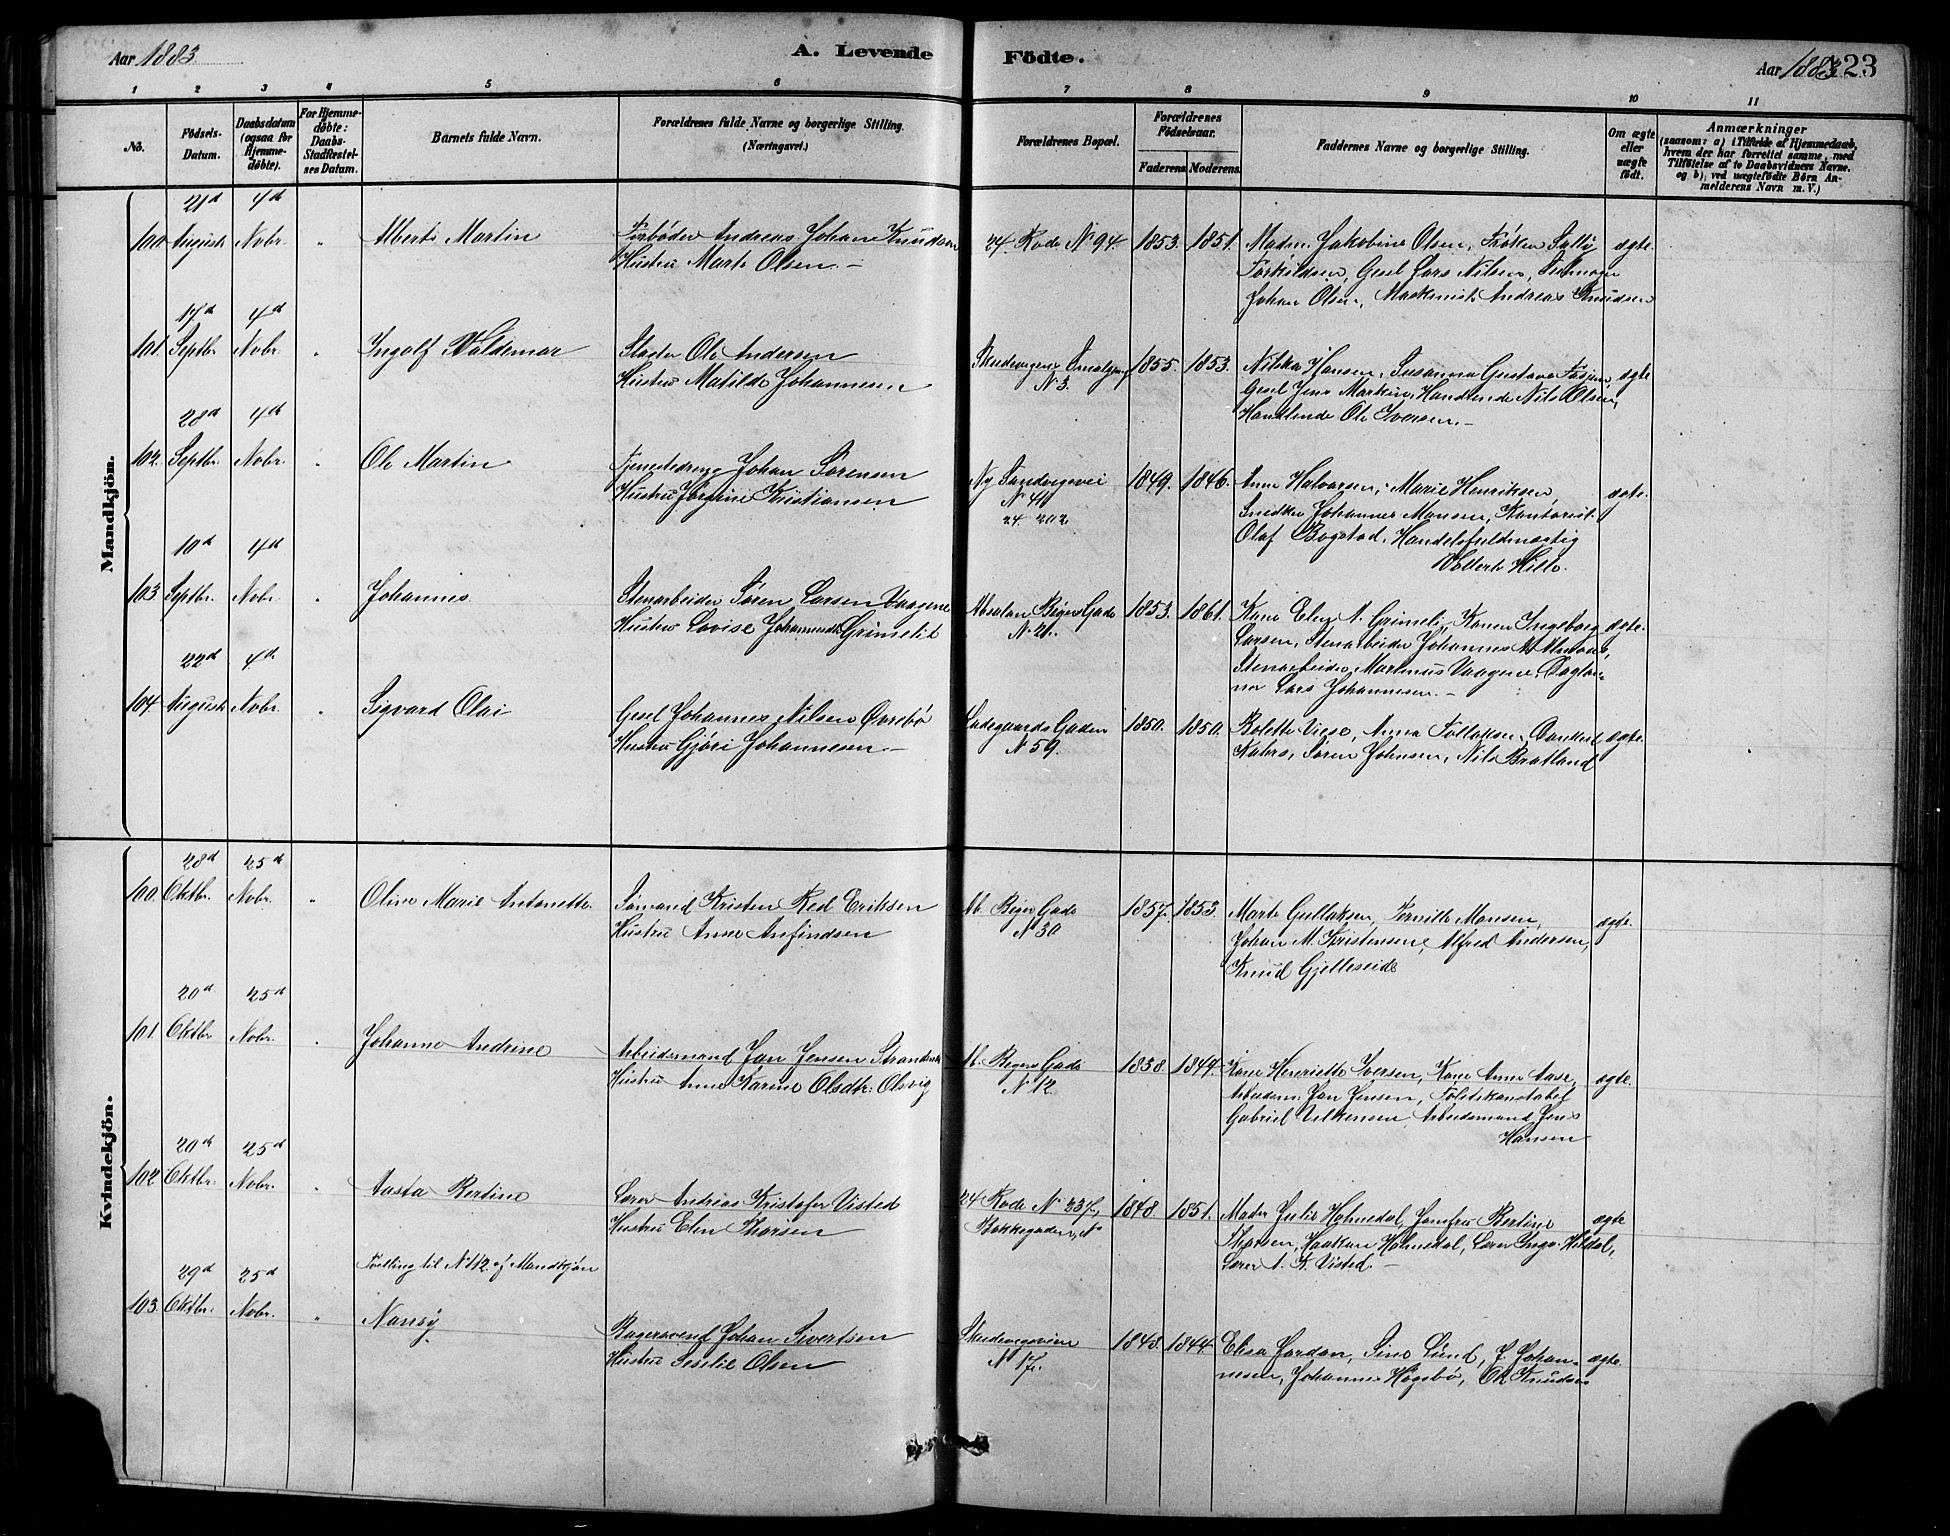 Aar 1883
A. Levende
Födte.
Aar 1883
23
1 2 3 4 5 6 7 8 9 10 11
No.
Födsels-
Datum.
Daabsdatum
(ogsaa for
Hjemme-
döbte).
For Hjemme-
døbte:
Daabs-
Stadfæstel-
ses Datum.
Barnets fulde Navn.
Forældrenes fulde Navne og borgerlige Stilling.
(Næringsvei.)
Forældrenes Bopæl.
Forældrenes
Födselsaar.
Faderens. Moderens.
Faddernes Navne og borgerlige Stilling.
Om ægte
eller
uægte
født.
Anmærkninger
(saasom: a) i Tilfælde af Hjemmedaab,
hvem der har forrettet samme, med
Tilföielse af to Daabsvidners Navne.
og b), ved uægtefödte Börn An-
melderens Navn m. V.)
Mandkjön.
21d 4d
100 August Nobr. " Albert Martin
Andreas Johan Knudsen
Hustru Marte Olsen. –
24. Rode N 94. 1853. 1851.
Madm. Jakobine Olsen, Frøken
Gesel Lars Nilsen,
Johan Olsen, Maskinist Andreas Knudsen
ægte.
17d 4d
101. Septbr. Nobr. " Ingolf Waldemar
Ole Andersen
Hustru Matilde Johannesen
N 3. 1855. 1853.
Hansen, Susanna Gustava
Gesel Jens Handlende Nils Olsen,
Handlende Ole Iversen. –
ægte
28d 4d
102. Septbr. Nobr. " Ole Martin
Tjenestedreng Johan Sørensen
Hustru Jørgine Kristiansen
Ny Sandvigsvei
N 411
24 202
1849. 1846.
Anne Halvorsen, Marie Henriksen,
Snedker Johannes Monsen, Kontorist
Olaf Bogstad, Handelsfuldmægtig
Hille.
ægte.
10d 4d
103 Septbr. Nobr. " Johannes
Stenarbeider Søren Larsen Vaagene
Hustru Lovise Johannesdt Grimelid
Absalon Beiers Gade
N. 21.
1853. 1861.
Kone Elen N. Grimeli, Konen Ingeborg
Larsen, Stenarbeider Johannes
Stenarbeider Martinus Vaagene, Dagløn-
ner Lars Johannesen. –
ægte.
22d 4d
104. August Nobr. " Sigvard Olai
Gesel Johannes Nilsen Øvrebø
Hustru Gjøri Johannesen –
Ladegaards Gaden
N 59.
1850. 1850.
Bolette Viese, Anna
Kahrs, Søren Johnsen, Nils Bratland
ægte.
Kvindekjön.
28d 25d
100. Oktbr. Nobr. " Oline Marie Antonette
Sømand Kristen Red Eriksen
Hustru Anne Anfindsen
Ab. Beiers Gade
N 30
1857. 1853.
Marte Gullaksen, Pernille Monsen,
Johan M. Kristensen, Alfred Andersen,
Knud Gjelleseide
ægte.
20d 25d
101. Oktbr. Nobr. " Johanne Andrine
Arbeidsmand Jan Jensen
Hustru Anne Karine Olsdtr. Olsvig
Ab. Beiers Gade
N 12.
1858. 1844.
Kone Henriette Iversen, Kone Anne Aase,
Arbeidsm. Jan Jensen, Politikonstabel
Gabriel Arbeidsmand Jens
Hansen
ægte.
20d 25d
102 Oktbr. Nobr. " Aasta Bertine
Lærer Andreas Kristofer Visted
Hustru Elen Thorsen
24 Rode N 237,
Bakkegaden, N
1848. 1851.
Mader Julie Holmedal, Jomfru Bertine
Thorsen, Haakon Holmedal, Lærer Inga. Hildal,
Lærer A. K. Visted. –
ægte
Tvilling til N 112 af Mandkjøn
29d 25d
103. Oktbr. Nobr. " Nansy
Bagersvend Johan Sivertsen
Hustru Seselie Olsen
N 17.
1848. 1844.
Elisa Jordan, Sine Lund, J. Johan-
nesen, Johannes Høgsbø, Ole Knudsen
ægte.